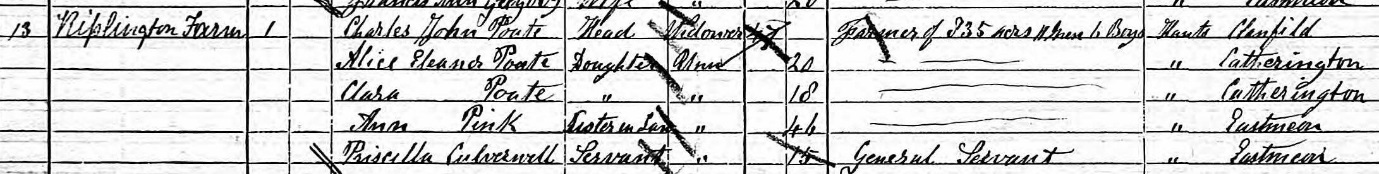 Wife " 20 " Eastmeon
13 Riplington Farm 1 Charles John Poate Head Widower 47 Farmer of 735 acres 11 men 6 Boys Hants Clanfield
Alice Eleanor Poate Daughter Unm 20 " Catherington
Clara Poate " " 18 " Catherington
Ann Pink Sister in Law " 46 " Eastmeon
Priscilla Culverwell Servant " 15 General Servant " Eastmeon